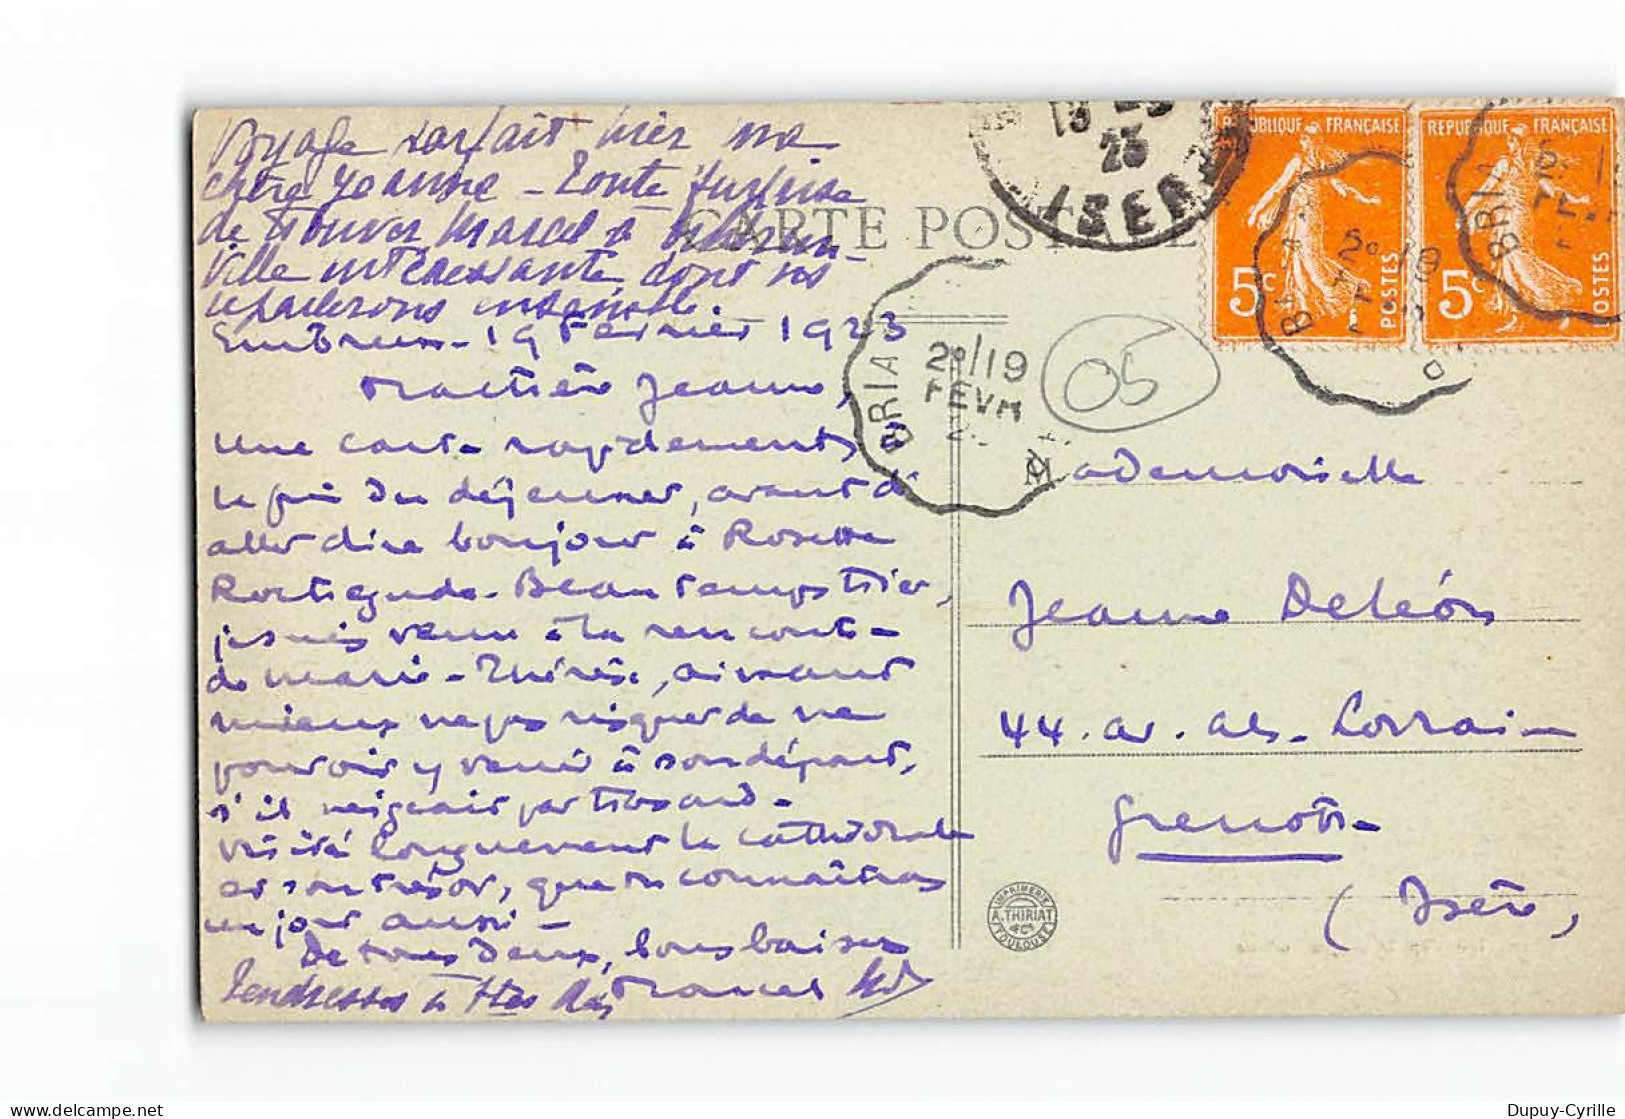 Voyage parfait hier ma
chère Jeanne - Toute surprise
de trouver Marcel à Embrun -
Ville intéressante dont ns
reparlerons ensemble.
Embrun - 19 Février 1923
Ma chère Jeanne,
une carte rapidement
la fin du déjeuner, avant d'
aller dire bonjour à Rosette
Beau temps hier,
je suis venu à la rencontre
de Marie-Thérèse, aimant
mieux ne pas risquer de ne
pouvoir y venir à son départ,
s'il neigeait par trop and -
visité longuement la cathédrale
et son trésor, que tu connaîtras
un jour aussi -
De tous deux, bons baisers
Tendresses à ttes deux Marcel
CARTE POSTALE
19 -3
23
ISERE
REPUBLIQUE FRANÇAISE
5c
POSTES
REPUBLIQUE FRANÇAISE
5c
POSTES
BRIA
2º/19
FEVR
05
Mademoiselle
Jeanne Deléon
44. av. Als. Lorraine
Grenoble
(Isère)
IMPRIMERIE
A. THIRIAT
& Cie
TOULOUSE
Dupuy-Cyrille